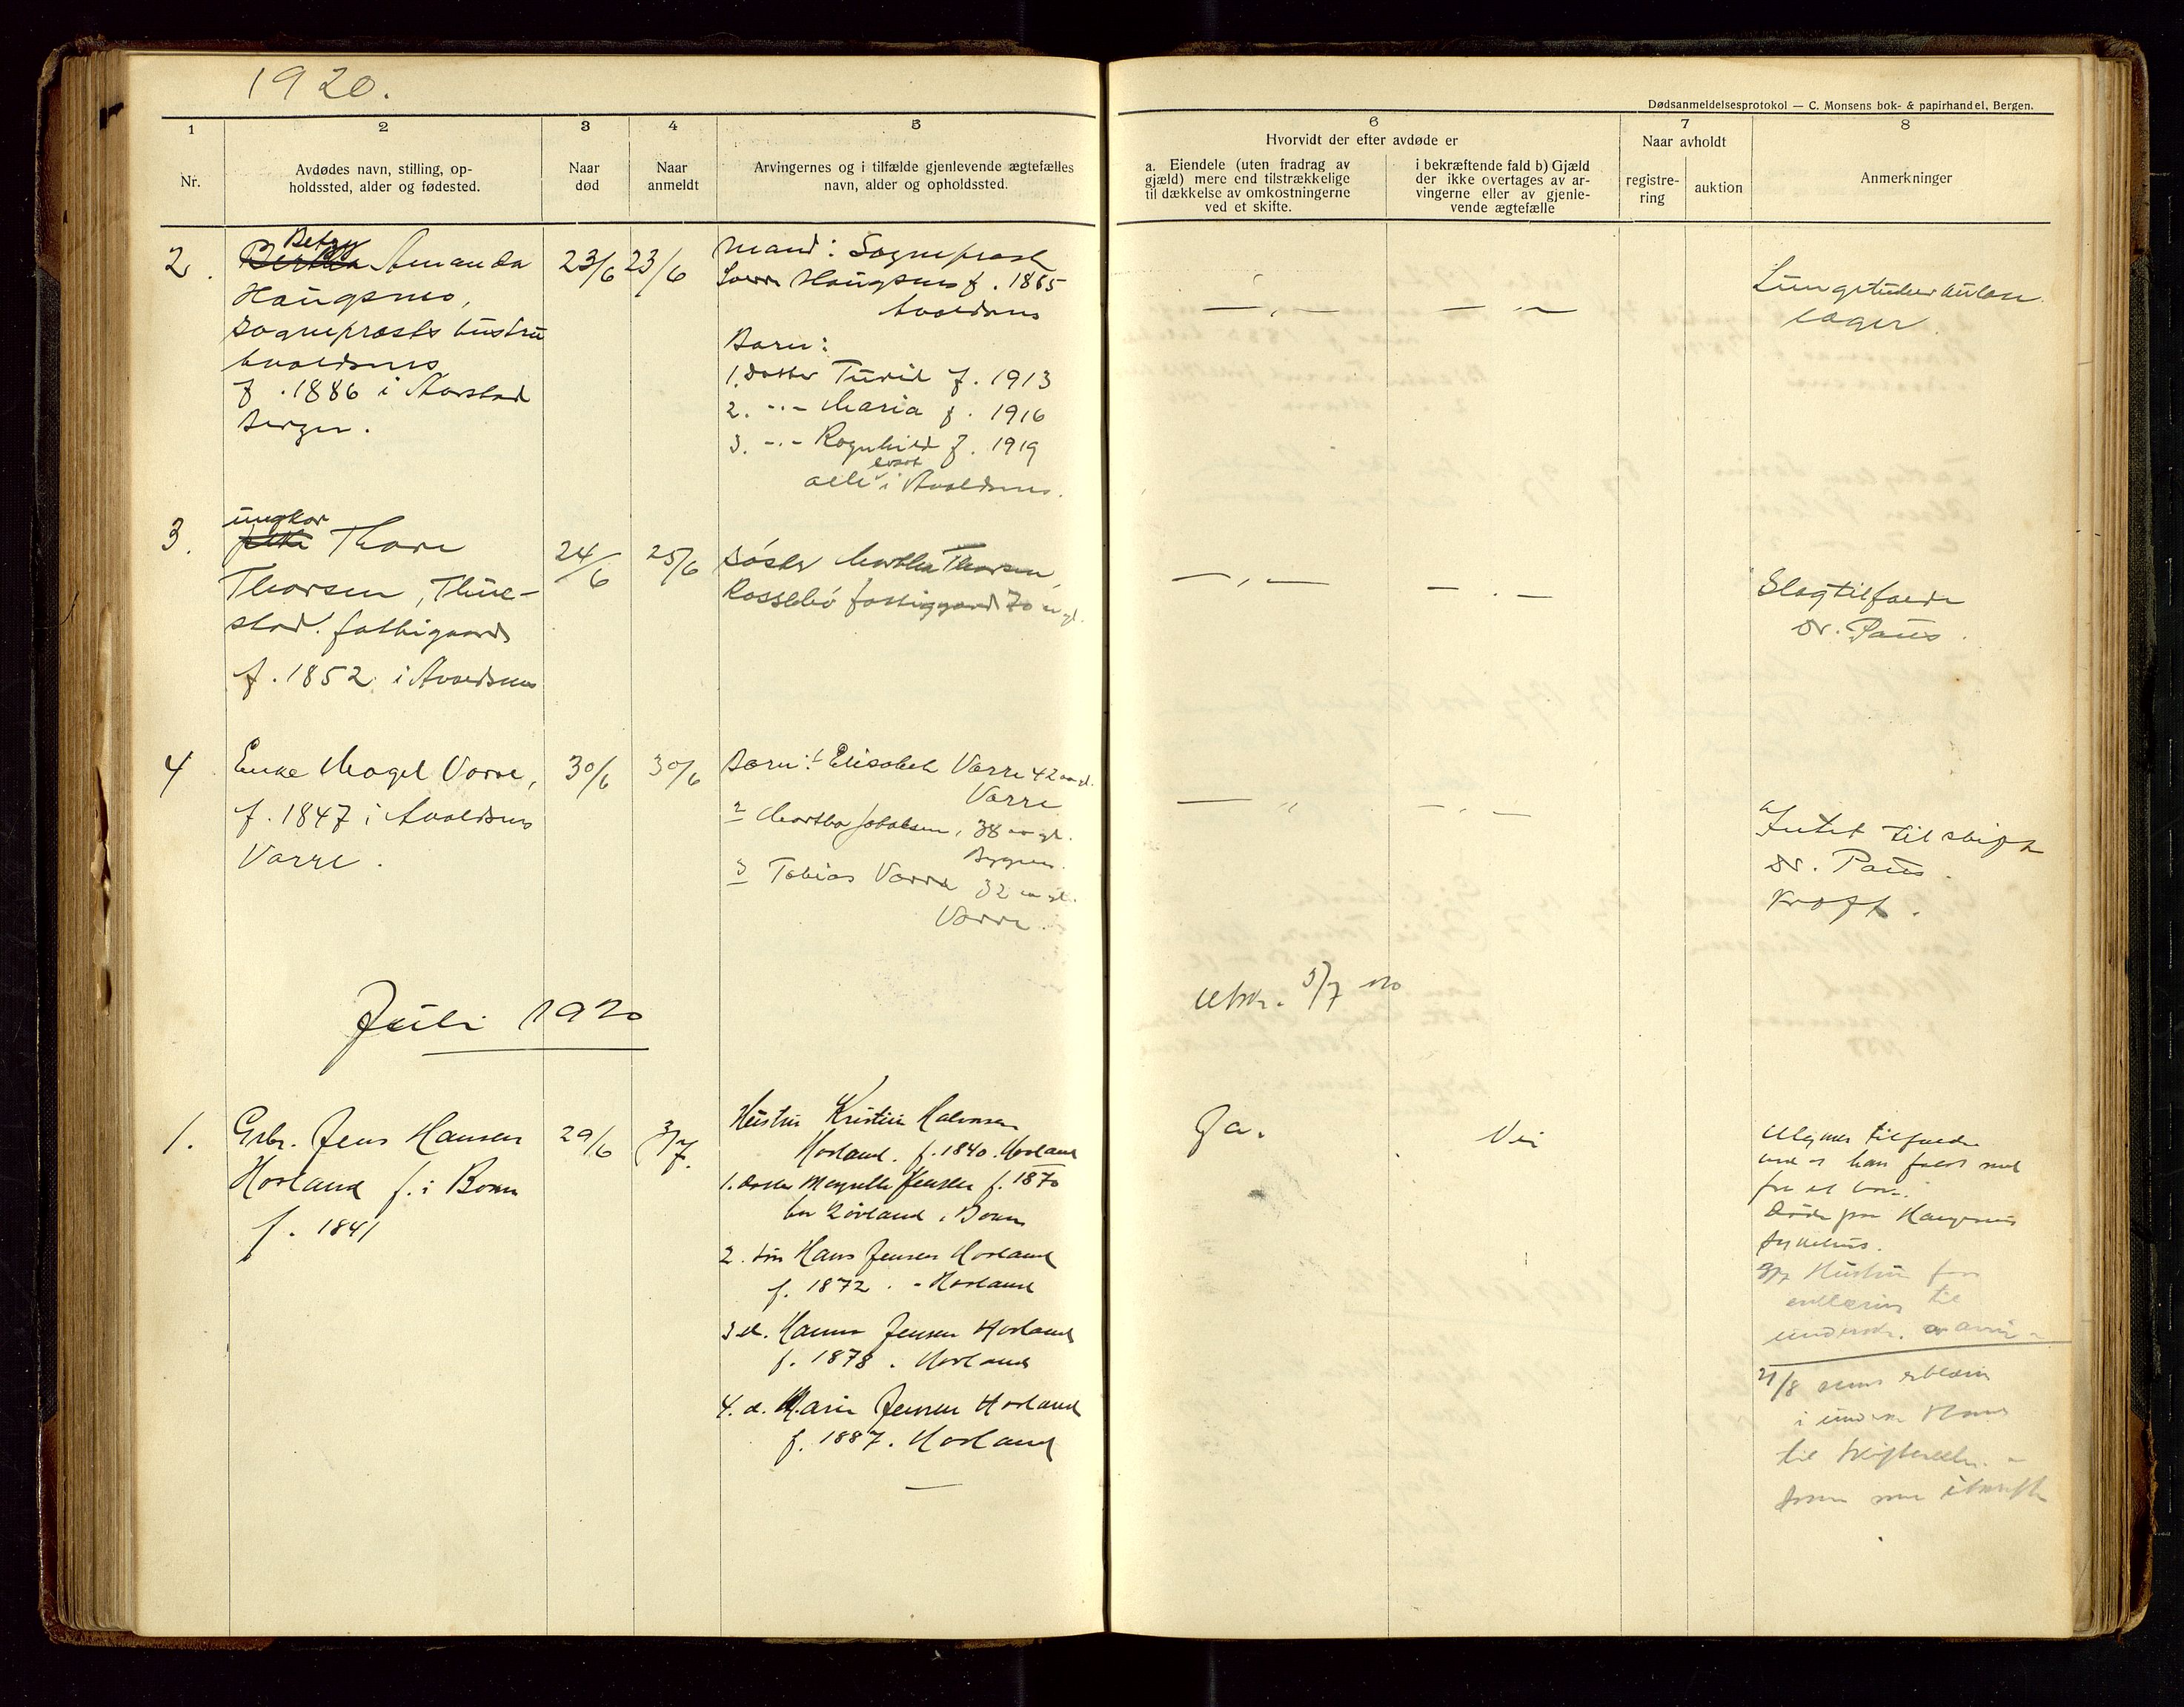 1920.
Dødsanmeldelsesprotokol — C. Monsens bok- & papirhandel, Bergen.
1
2
3
4
5
6
7
8
Nr.
Avdødes navn, stilling, op-
holdssted, alder og fødested.
Naar
død
Naar
anmeldt
Arvingernes og i tilfælde gjenlevende ægtefælles
navn, alder og opholdssted.
Hvorvidt der efter avdøde er
a. Eiendele (uten fradrag av
gjæld) mere end tilstrækkelige
til dækkelse av omkostningerne
ved et skifte.
i bekræftende fald b) Gjæld
der ikke overtages av ar-
vingerne eller av gjenle-
vende ægtefælle
Naar avholdt
registre-
ring
auktion
Anmerkninger
2.
Betzy
Bertha Amanda
Haugsnes,
sogneprests hustru
Avaldsnes
f. 1886 i Aarstad
Bergen.
23/6
23/6
Mand: Sogneprest
Haugsnes f. 1885
Avaldsnes
Barn:
1. Datter Turid f. 1913
2. -"- Maria f. 1916
3. -"- Ragnhild f. 1919
alle i Avaldsnes.
— " —
— " —
Lungetuberkulose
3.
ungkar
pike Thore
Thorsen, Thue-
stad. fattiggaard
f. 1852 i Avaldsnes
24/6
25/6
Søster Martha Thorsen,
Rossebø fattiggaard 70 aar gl.
— " —
— " —
Slagtilfælde
Dr. Paus.
4
Enke Magel Vorre,
f. 1847 i Avaldsnes
Vorre.
30/6
30/6
Barn: 1 Elisabeth Vorre 42 aar gl.
Vorre
2 Martha Jakobsen, 38 aar gl.
3 Tobias Vorre 32 aar gl.
Vorre.
— " —
— " —
Intet til skifte
Dr. Paus.
Kræft.
Juli 1920
Utskr. 5/7 20
1.
Gbr. Jens Hansen
Hovland f. i Bokn
f. 1841
29/6
3/7.
Hustru Kristine Halvorsen
Hovland. f. 1840. Hovland
1. Datter Jensen f. 1870
bor i Bokn
2. søn Hans Jensen Hovland
f. 1872. - Hovland
3 d. Hanna Jensen Hovland
f. 1878. Hovland
4. d. Marie Jensen Hovland
f. 1887. Hovland
Ja.
Nei
Ulykkes tilfælde
ved at han faldt ned
Døde paa Haugesunds
sykehus.
3/7 Hustru faar
erklæring til
underskr. av arvin-
21/8 erklæring
i
til